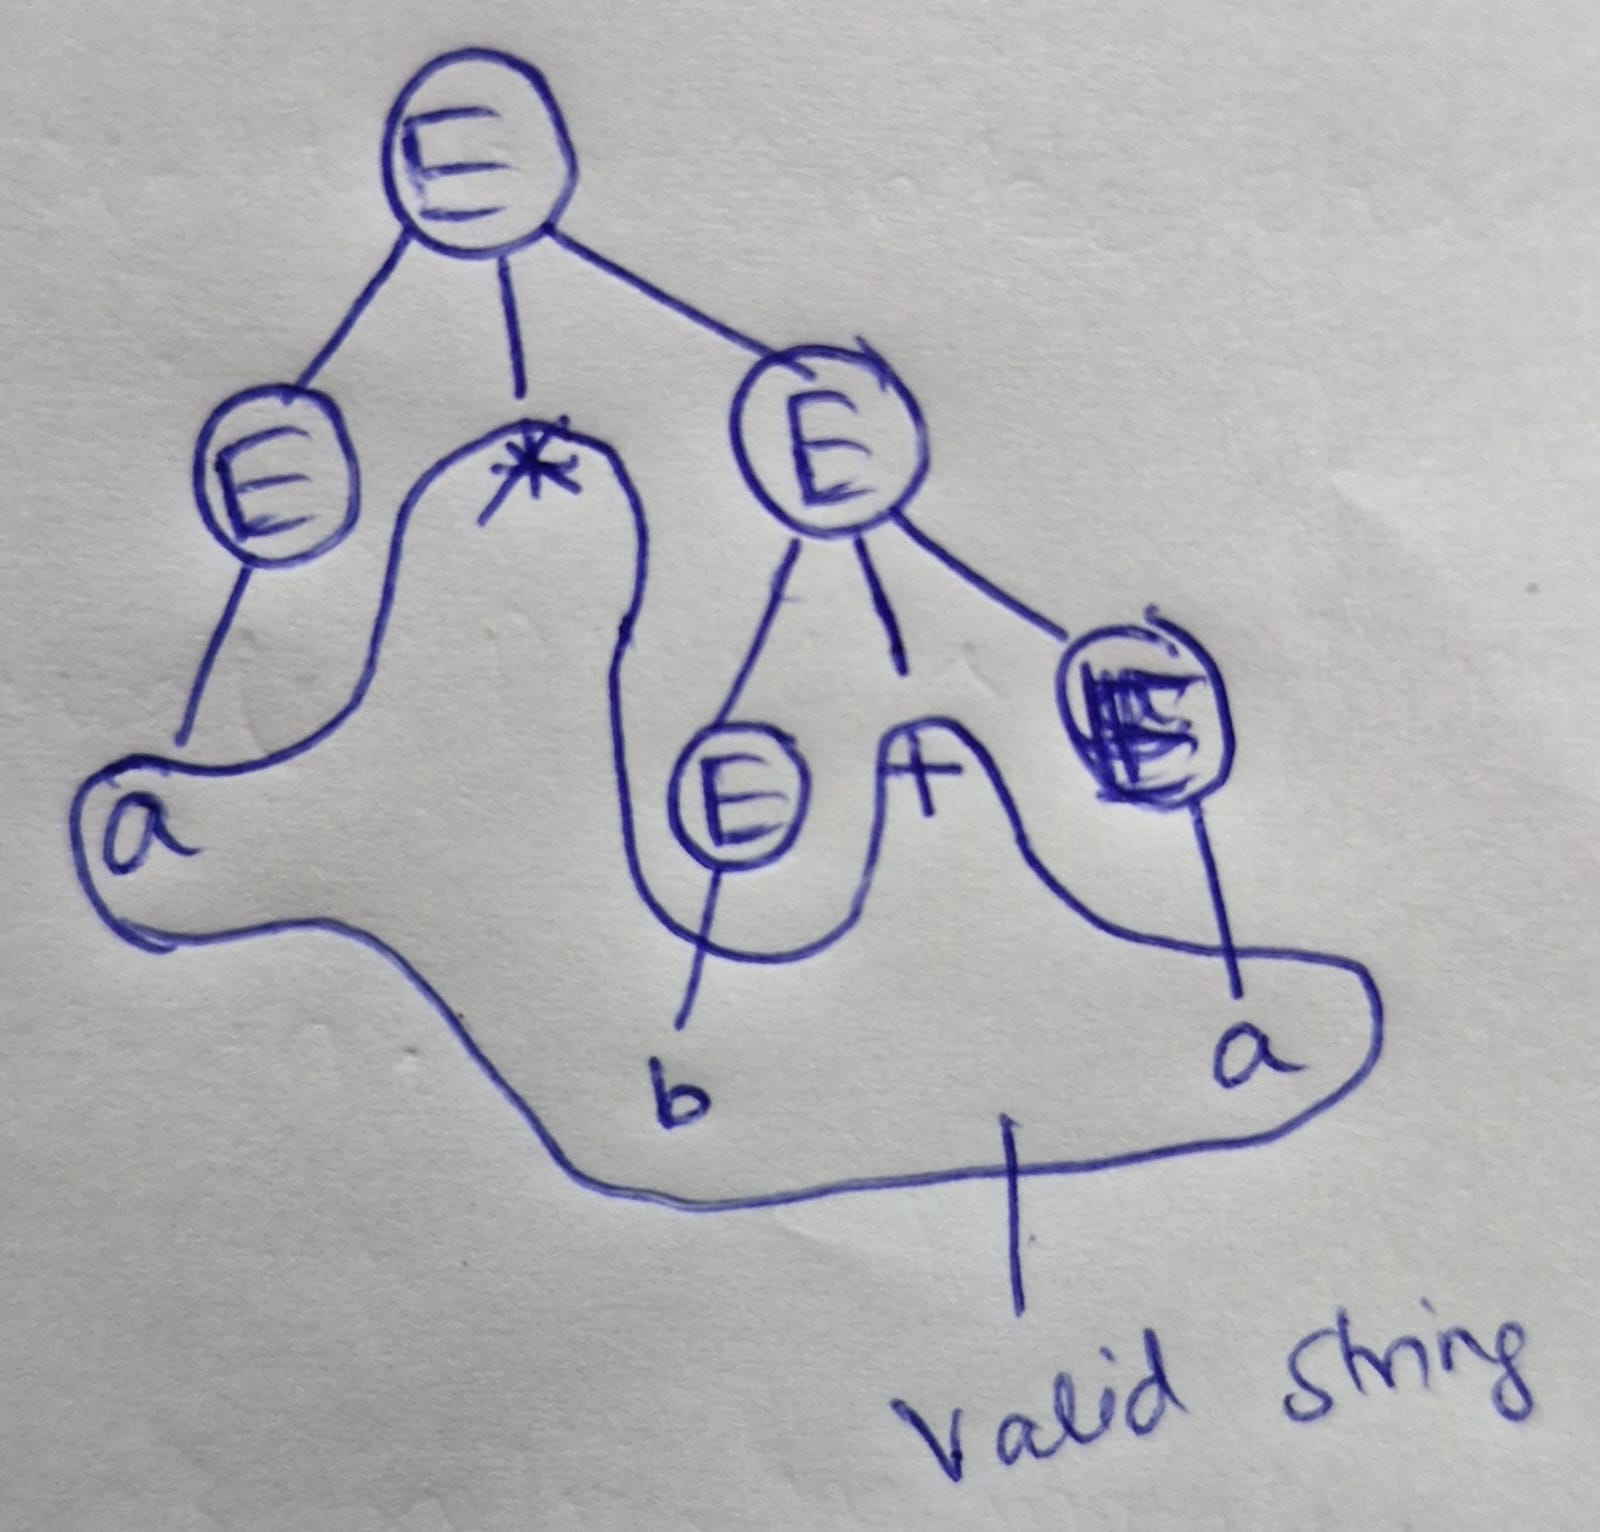 E
E * E
E + E
a
b a
Valid string